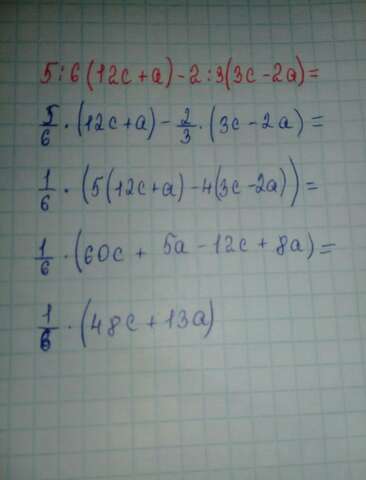 5:6(12c+a)-2:3(3c-2a)=
5/6 · (12c+a) - 2/3 · (3c-2a) =
1/6 · (5(12c+a) - 4(3c-2a)) =
1/6 · (60c + 5a - 12c + 8a) =
1/6 · (48c + 13a)